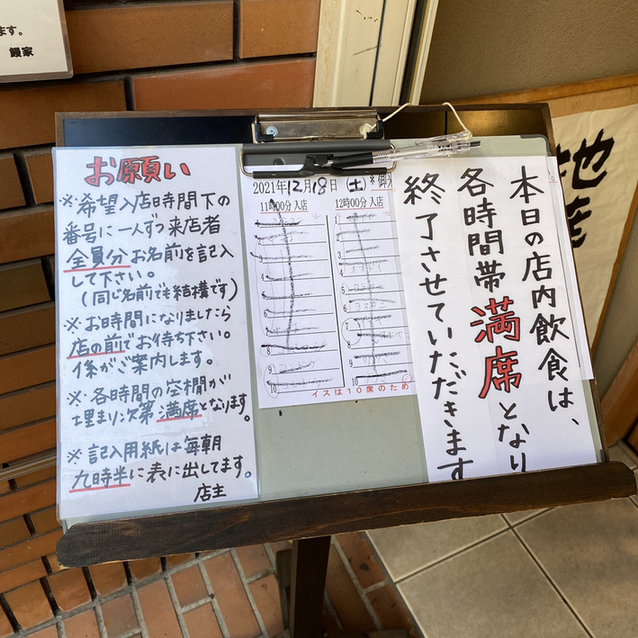 ます。
饅家
お願い
※希望入店時間下の
番号に一人ずつ来店者
全員分お名前を記入
して下さい。
(同じ名前でも結構です)
※お時間になりましたら
店の前でお待ち下さい。
係がご案内します。
※各時間の空欄が
埋まり次第満席となります。
※記入用紙は毎朝
九時半に表に出してます。
店主
2021年12月18日(土)
11時00分入店
12時00分入店
イスは10席のため
本日の店内飲食は、
各時間帯満席となり
終了させていただきます
地